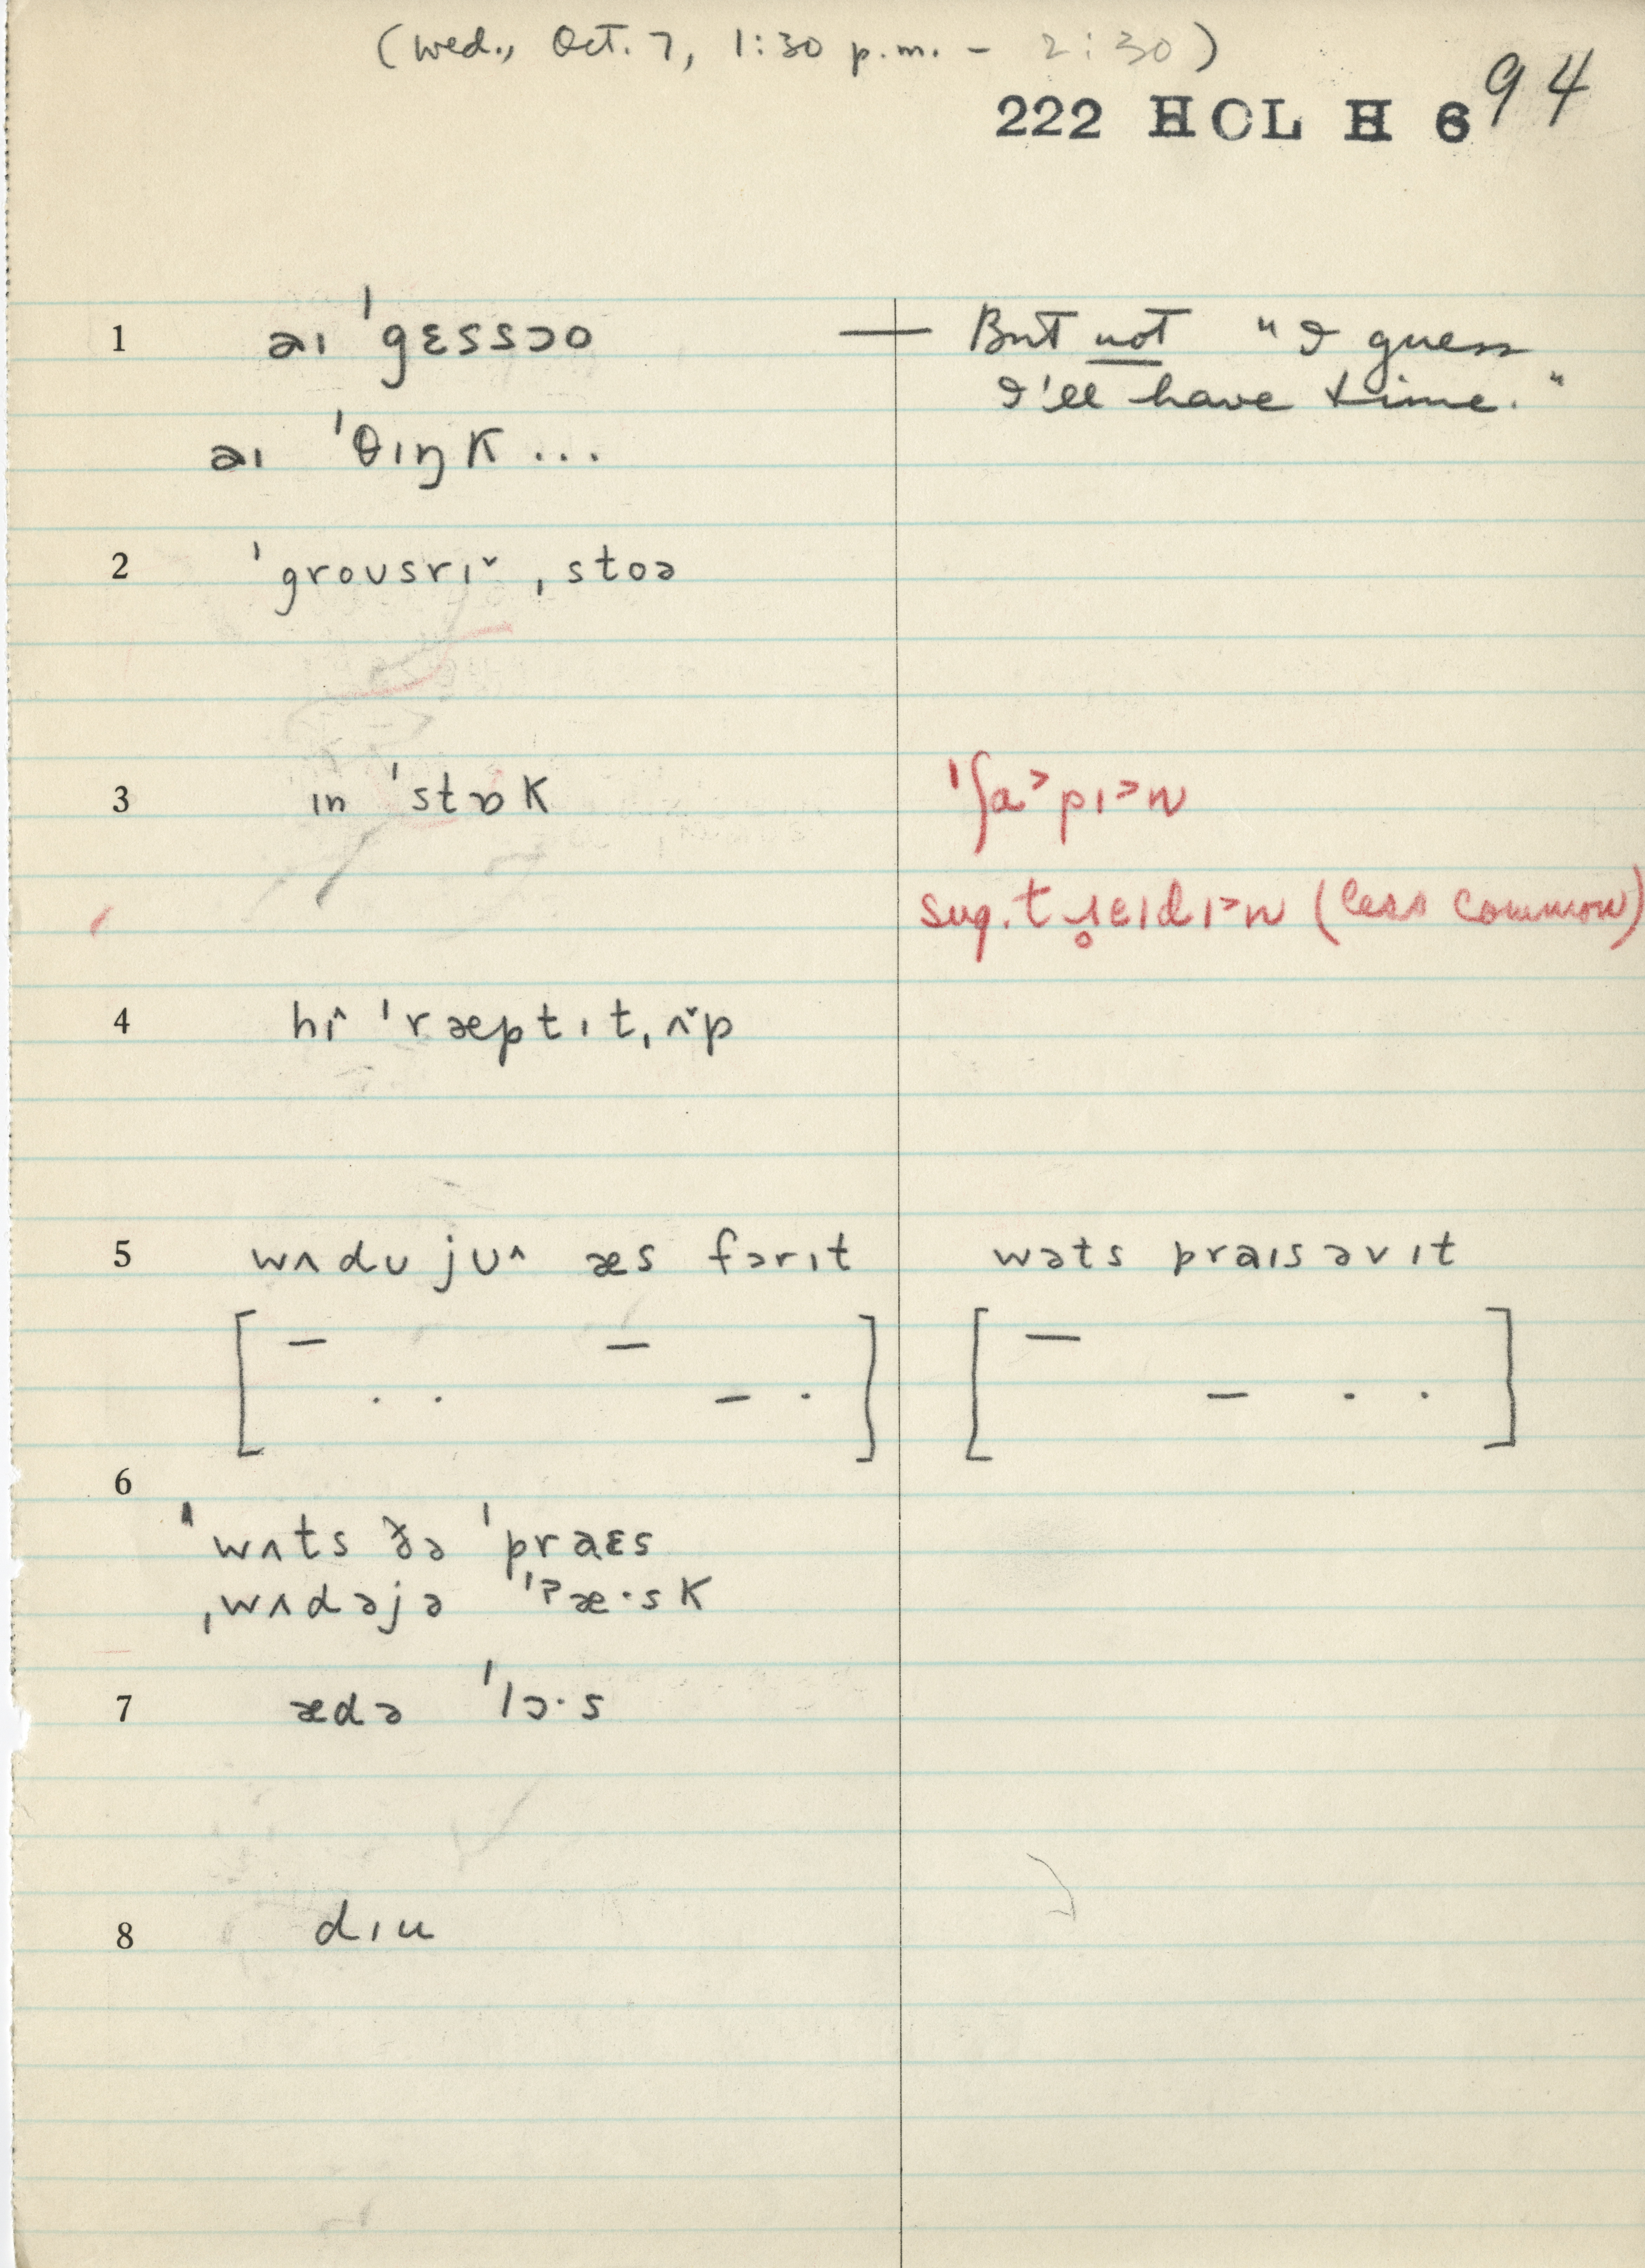 (Wed., Oct. 7, 1:30 p.m. - 2:30)
222 HOL H 6 94
1 aɪ ˈgɛssɔo — But not "I guess
I'll have time."
aɪ ˈθɪŋk ...
2 ˈgroʊsrɪˇ ˌstoə
3 ɪn ˈstɒk ˈʃɑ˃pɪ˃n
sug. tɹ̥eɪdɪ˃n (less common)
4 hi^ ˈræptɪtˌʌˇp
5 wʌdʊ jʊ^ æs fərɪt wəts praɪs əv ɪt
6
ˈwʌts ðə ˈpraɛs
ˌwʌdəjə ˈʔæ·sk
7 ædə ˈlɔ·s
8 dɪu